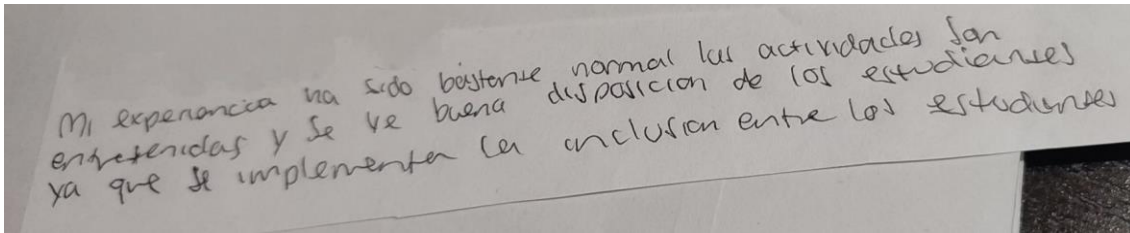 Mi experiencia ha sido bastante normal las actividades son
entretenidas y se ve buena disposicion de los estudiantes
ya que se implementa la inclusion entre los estudiantes